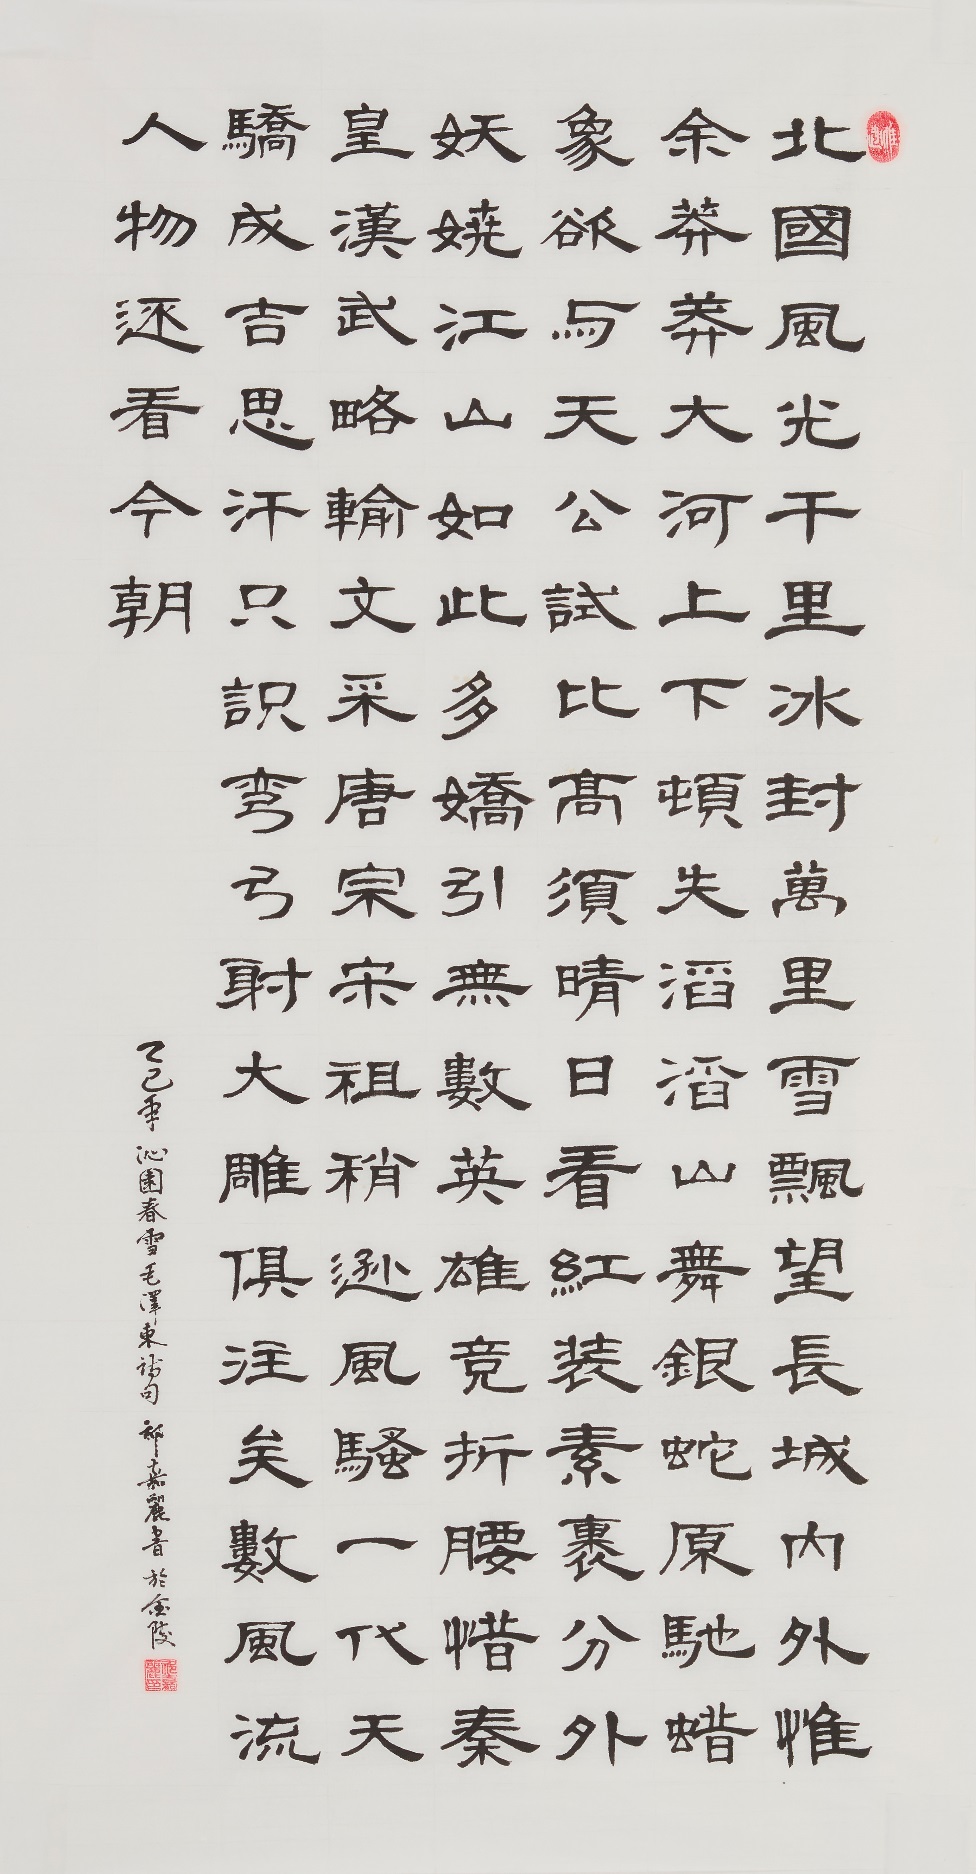 北國風光千里冰封萬里雪飄望長城內外惟
余莽莽大河上下頓失滔滔山舞銀蛇原馳蜡
象欲与天公試比高須晴日看紅装素裹分外
妖嬈江山如此多嬌引無數英雄竞折腰惜秦
皇漢武略輸文采唐宗宋祖稍逊風騷一代天
驕成吉思汗只识弯弓射大雕俱注矣數風流
人物还看今朝
乙巳年沁園春雪毛澤東詩句祁嘉麗書於金陵